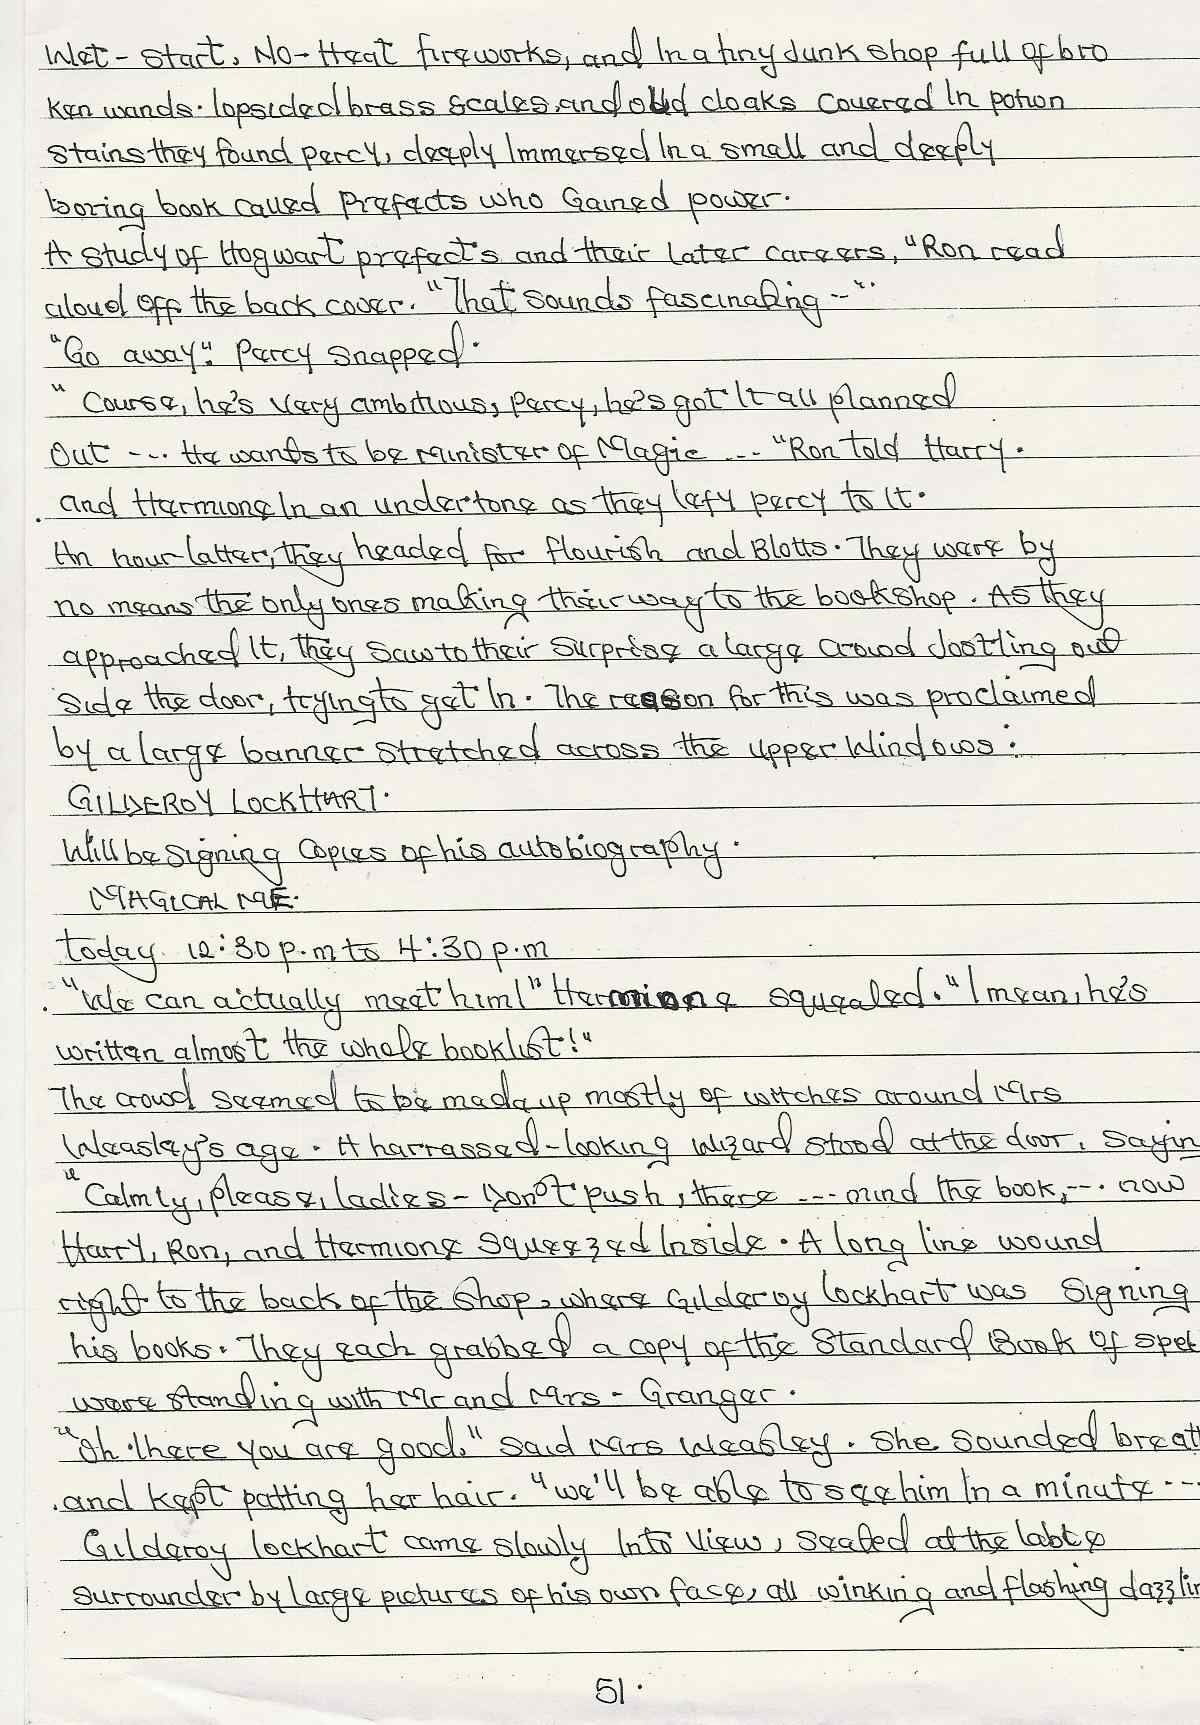 Wet-Start, No-Heat fireworks, and In a tiny Junk shop full of bro
ken wands. lopsided brass scales, and old cloaks covered In potion
stains they found percy, deeply Immersed In a small and deeply
boring book called Prefects who Gained power.
A study of Hogwart prefects and their later careers, "Ron read
aloud off the back cover. "That sounds fascinating --".
"Go away". Percy snapped.
"Course, he's very ambitious, Percy, he's got It all planned
Out --- He wants to be Minister of Magic --- "Ron told Harry.
and Hermione In an undertone as they lefy percy to It.
An hour latter, they headed for flourish and Blotts. They were by
no means the only ones making their way to the bookshop. As they
approached It, they saw to their surprise a large crowd Jostling out
side the door, trying to get In. The reason for this was proclaimed
by a large banner stretched across the upper Windows:
GILDEROY LOCKHART.
Will be signing Copies of his autobiography.
MAGICAL ME.
today 12:30 p.m to 4:30 p.m
"We can actually meet him!" Hermione squealed. "I mean, he's
written almost the whole booklist!"
The crowd seemed to be made up mostly of witches around Mrs
Weasley's age. A harrassed-looking Wizard stood at the door, sayin
"Calmly, please, ladies - Don't push, there --- mind the book, --- now
Harry, Ron, and Hermione squeezed Inside. A long line wound
right to the back of the shop, where Gilderoy lockhart was signing
his books. They each grabbed a copy of the Standard Book Of spel
were standing with Mr and Mrs - Granger.
"Oh there you are good," said Mrs Weasley. She sounded breat
and kept patting her hair. "we'll be able to see him In a minute ---
Gilderoy lockhart came slowly Into View, seated at the table
surrounder by large pictures of his own face, all winking and flashing dazzlin
51.